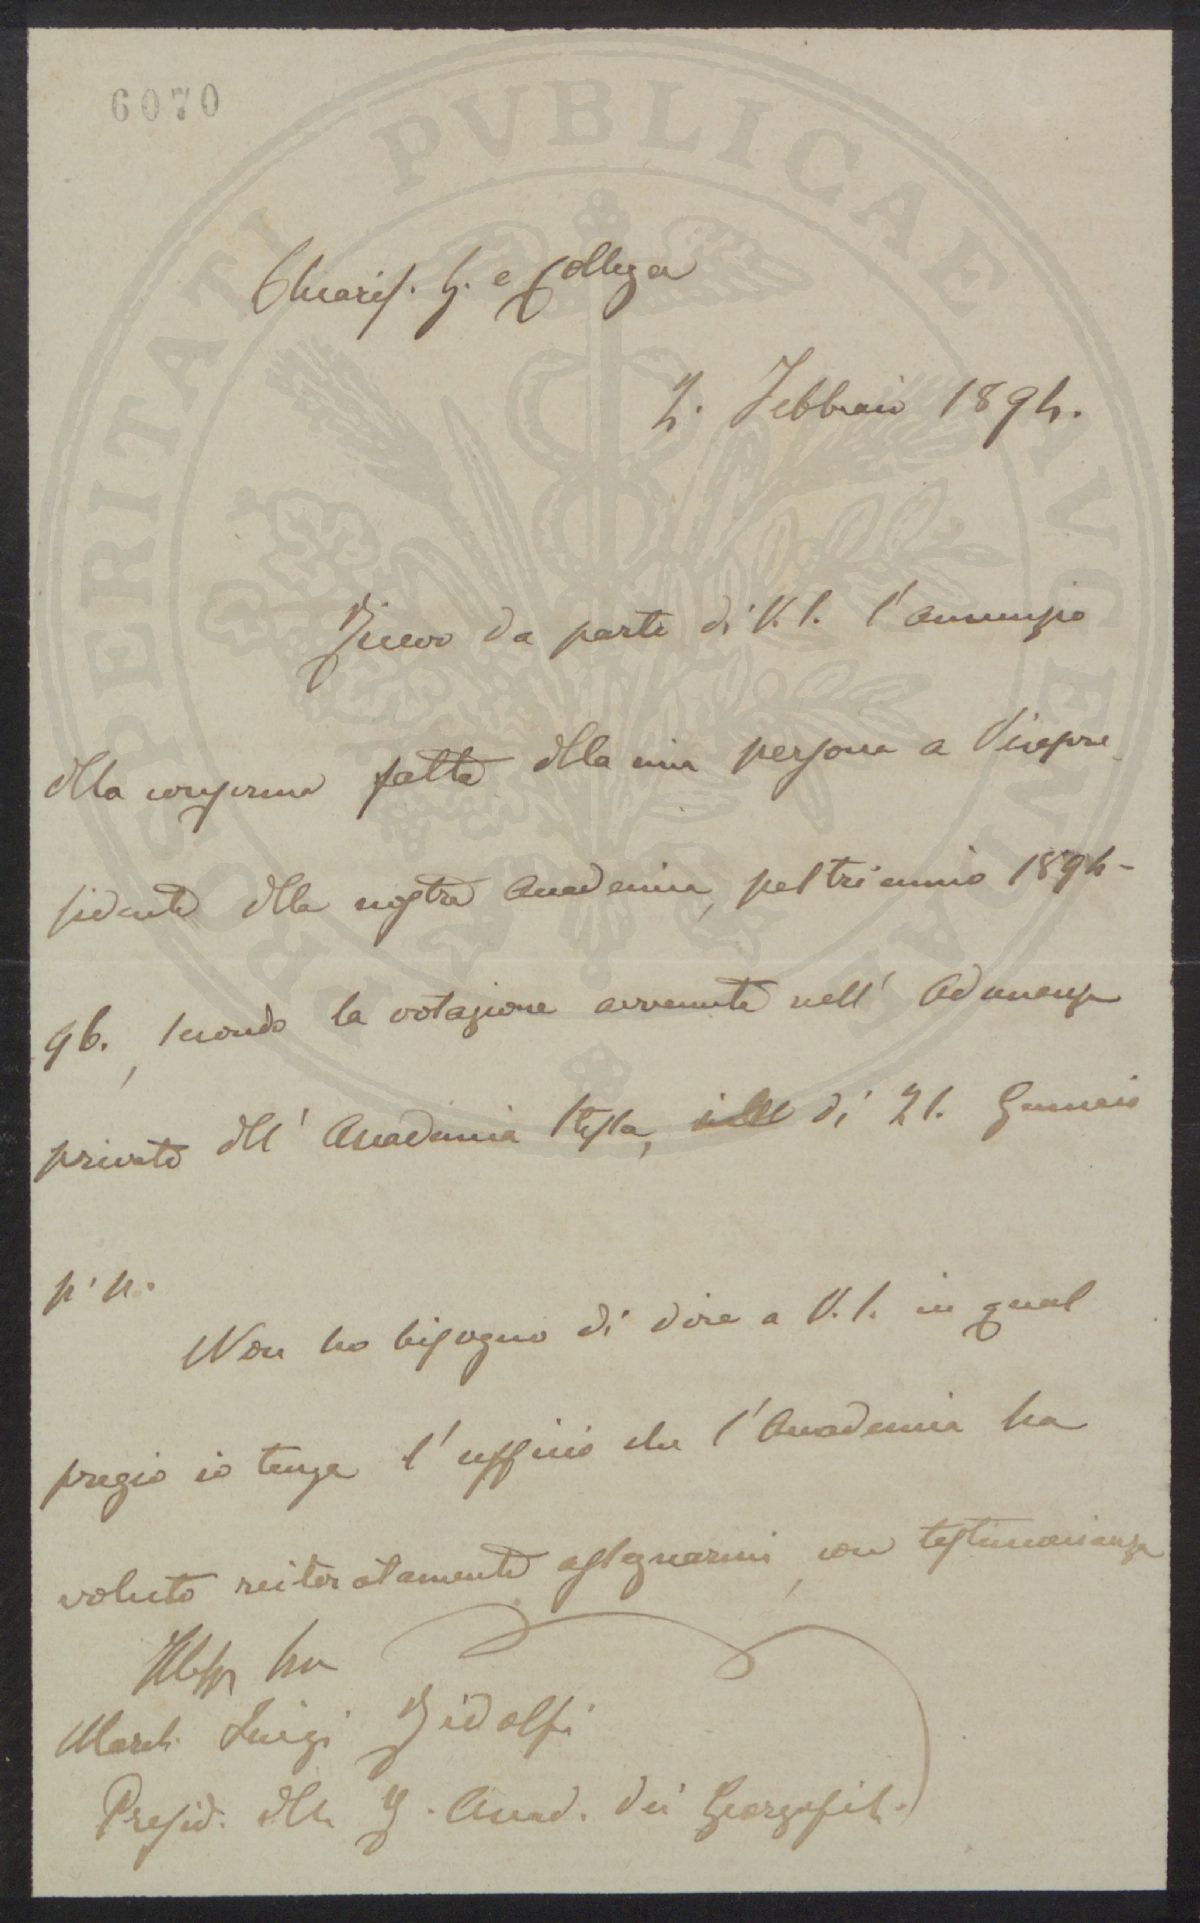 6070
PROSPERITATI PVBLICAE AVGENDAE
Chiaris. S. e Collega
2. Febbraio 1894.
Ricevo da parte di V. S. l'annunzio
della conferma fatta della mia persona a Vicepre-
sidente della nostra Accademia, pel triennio 1894-
96., secondo la votazione avvenuta nell'Adunanza
privata dell'Accademia stessa, di 21. Gennaio
p. p.
Non ho bisogno di dire a V. S. in qual
pregio io tenga l'ufficio che l'Accademia ha
voluto reiteratamente assegnarmi, con testimonianza
March. Luigi Ridolfi
Presid. della R. Accad. dei Georgofili.